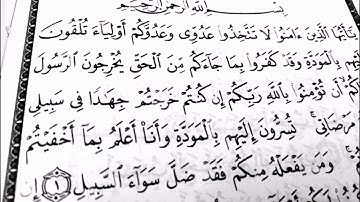 بِسْمِ اللَّهِ الرَّحْمَٰنِ الرَّحِيمِ
يَا أَيُّهَا الَّذِينَ ءَامَنُوا لَا تَتَّخِذُوا عَدُوِّى وَعَدُوَّكُمْ أَوْلِيَآءَ تُلْقُونَ
إِلَيْهِم بِالْمَوَدَّةِ وَقَدْ كَفَرُوا بِمَا جَآءَكُم مِّنَ الْحَقِّ يُخْرِجُونَ الرَّسُولَ
أَن تُؤْمِنُوا بِاللَّهِ رَبِّكُمْ إِن كُنتُمْ خَرَجْتُمْ جِهَٰدًا فِى سَبِيلِى
مَرْضَاتِى ۚ تُسِرُّونَ إِلَيْهِم بِالْمَوَدَّةِ وَأَنَا۠ أَعْلَمُ بِمَآ أَخْفَيْتُمْ
وَمَن يَفْعَلْهُ مِنكُمْ فَقَدْ ضَلَّ سَوَآءَ السَّبِيلِ ١ إِن